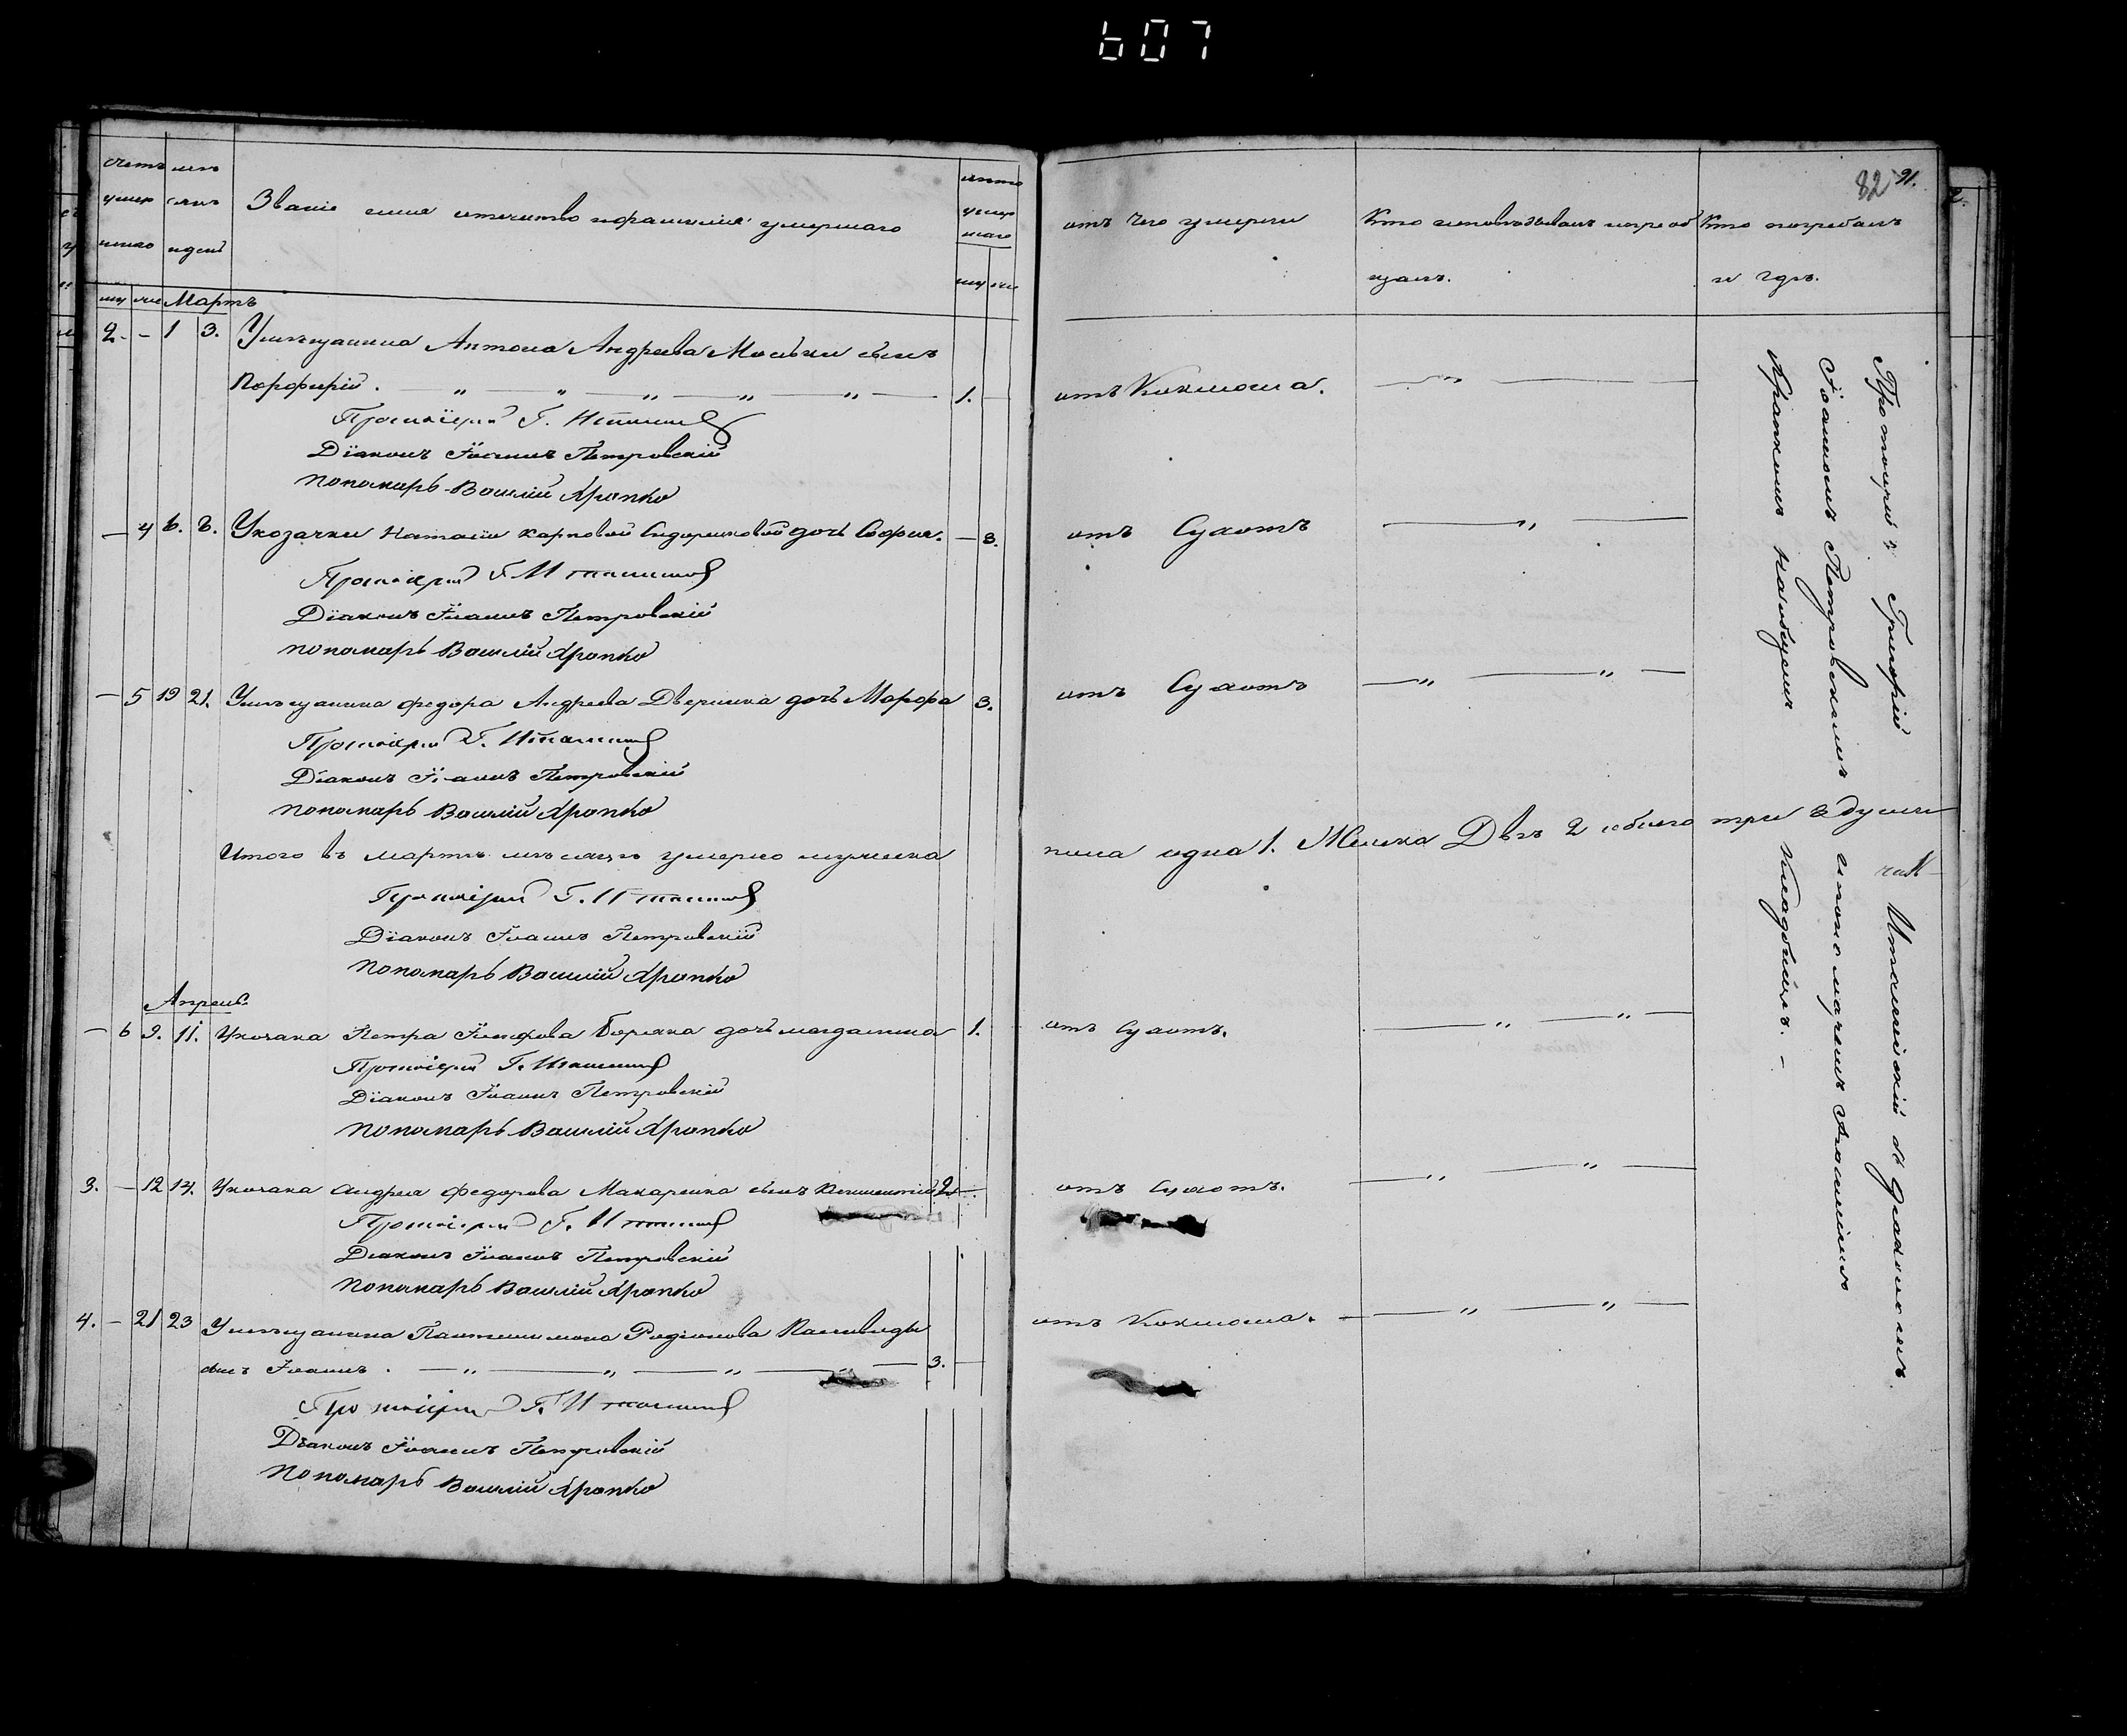 607
82 91.
счетъ умер шаго
мѣ сяцъ и день
Званіе имя отечество и фамилія умершаго
лѣта умер шаго
му же
отъ чего умерли
Кто исповѣдывалъ и пріоб щалъ.
Кто погребалъ и гдѣ.
му же Мартъ
2. - 1 3. Умѣщанина Антона Андреева сынъ
Порфирій. — „ — „ — „ — „ — „ — 1. — отъ Коклюша.
Протоіерей Г.
Діаконъ Іоаннъ Петровскій
Пономарь Василій Храпко
— 4 6. 8. Укозачки Наталіи Карповой Сидоренковой дочь Софія. — 3. отъ Сухотъ
Протоіерей Г.
Діаконъ Іоаннъ Петровскій
Пономарь Василій Храпко
— 5 19 21. Умѣщанина Федора Андреева дочь Марфа 3. отъ Сухотъ
Протоіерей Г.
Діаконъ Іоаннъ Петровскій
Пономарь Василій Храпко
Итого въ мартѣ мѣсяцѣ умерло мужеска пола одна 1. Женска Двѣ 2 обоего три 3 души
Протоіерей Г.
Діаконъ Іоаннъ Петровскій
Пономарь Василій Храпко
Апрель
— 6 9. 11. Укозака Петра дочь Магдалина 1. отъ Сухотъ.
Протоіерей Г.
Діаконъ Іоаннъ Петровскій
Пономарь Василій Храпко
3. — 12 14. Укозака Андрея Федорова Макаренка сынъ 2 — отъ Сухотъ.
Протоіерей Г.
Діаконъ Іоаннъ Петровскій
Пономарь Василій Храпко
4. — 21 23 Умѣщанина Пантелимона Родіонова
сынъ Іоаннъ. — „ — „ — „ — „ — 3. — отъ Коклюша.
Протоіерей Г.
Діаконъ Іоаннъ Петровскій
Пономарь Василій Храпко
Протоіерей Григорій съ Діакономъ
Іоанномъ Петровскимъ и пономаремъ Василіемъ
Храпкомъ на общемъ кладбищѣ. —